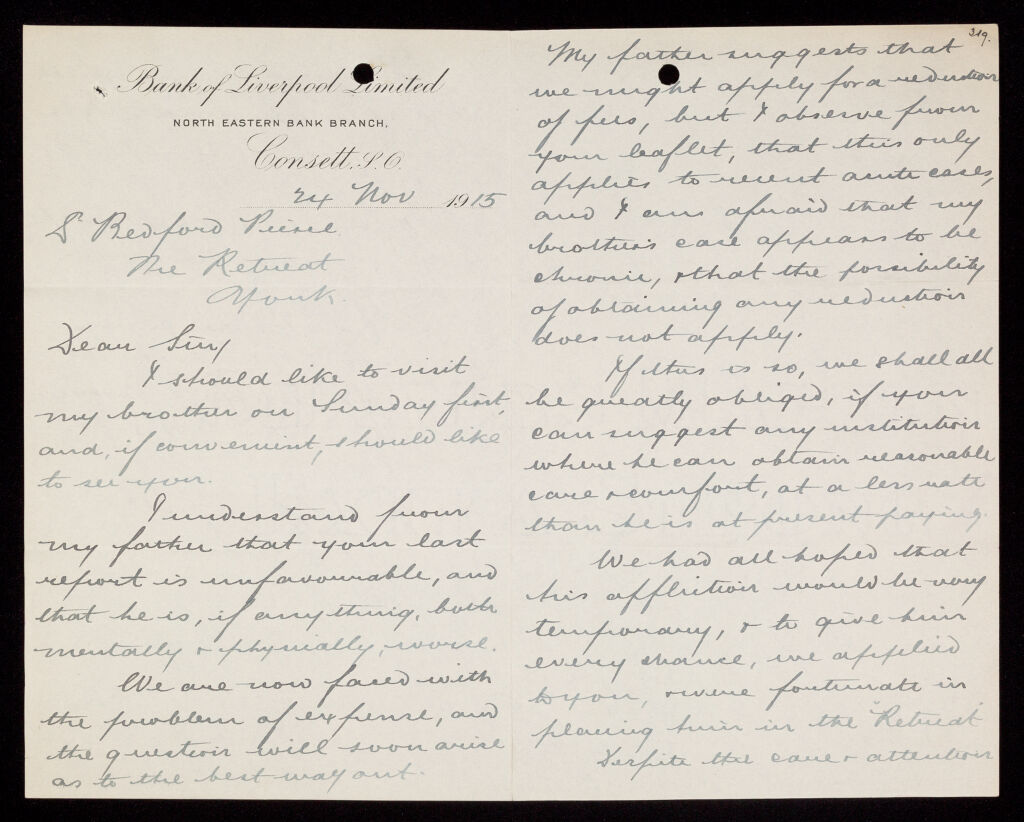 Bank of Liverpool Limited
NORTH EASTERN BANK BRANCH.
Consett. S.O.
24 Nov 1915
Dr Bedford Pierce
The Retreat
York.
Dear Sir,
I should like to visit
my brother on Sunday first,
and, if convenient, should like
to see you.
I understand from
my father that your last
report is unfavourable, and
that he is, if anything, both
mentally & physically, worse.
We are now faced with
the problem of expense, and
the question will soon arise
as to the best way out.
319.
My father suggests that
we might apply for a reduction
of fees, but I observe from
your leaflet, that this only
applies to recent acute cases,
and I am afraid that my
brother's case appears to be
chronic, & that the possibility
of obtaining any reduction
does not apply.
If this is so, we shall all
be greatly obliged, if you
can suggest any institution
where he can obtain reasonable
care & comfort, at a less rate
than he is at present paying.
We had all hoped that
his affliction would be very
temporary, & to give him
every chance, we applied
to you, & were fortunate in
placing him in the "Retreat"
Despite the care & attention